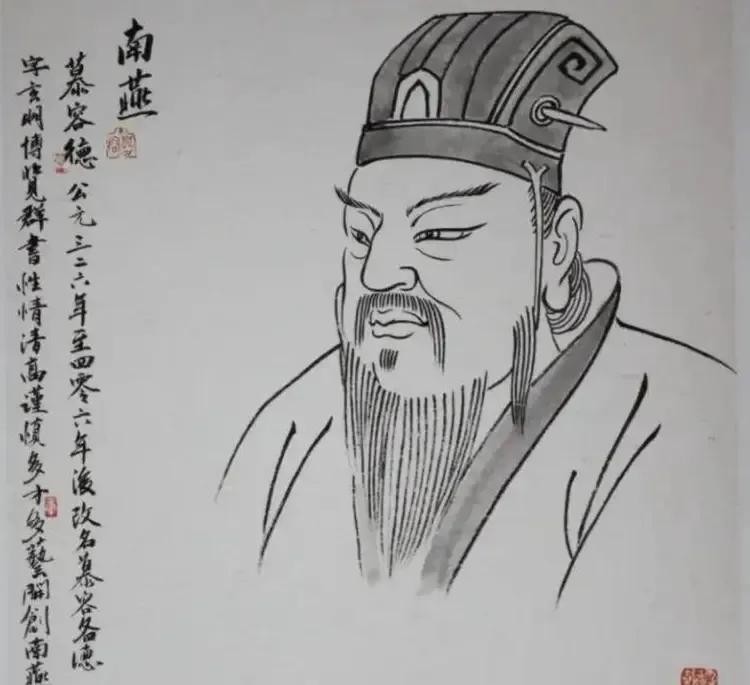 南燕
慕容德 公元三二六年至四零六年後改名慕容备德
字玄明博覽群書性情清高謹慎多才多藝開創南燕